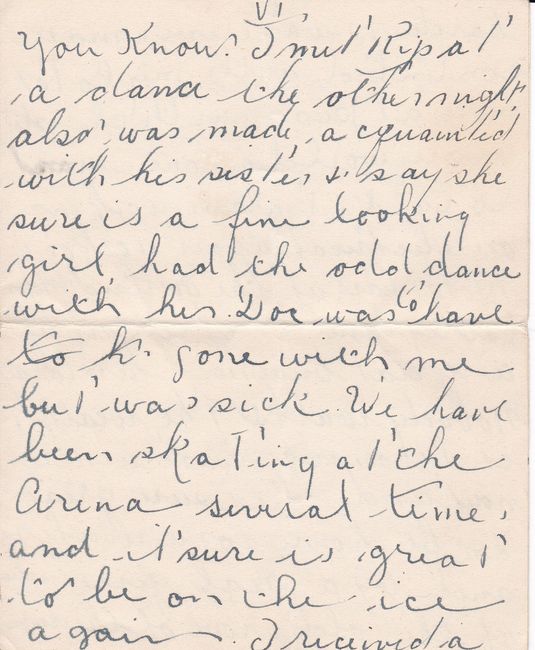 VI
You Know? I met Rip at
a dance the other night,
also was made acquaint'd
with his sister & say she
sure is a fine looking
girl, had the odd dance
with her. Doc was to have
to gone with me
but was sick. We have
been skating at the
Arena several time,
and it sure is great
to be on the ice
again. I received a